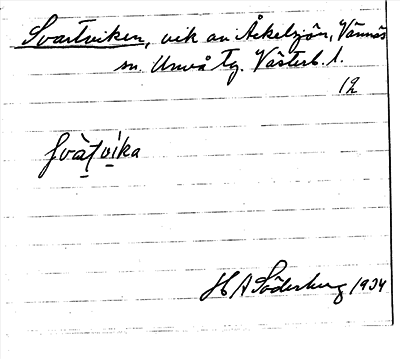 Svartviken, vik av Åkelsjön, Vännäs
sn. Umeå tg. Västerb. l.
12
Svàtvika
H A Söderberg 1934